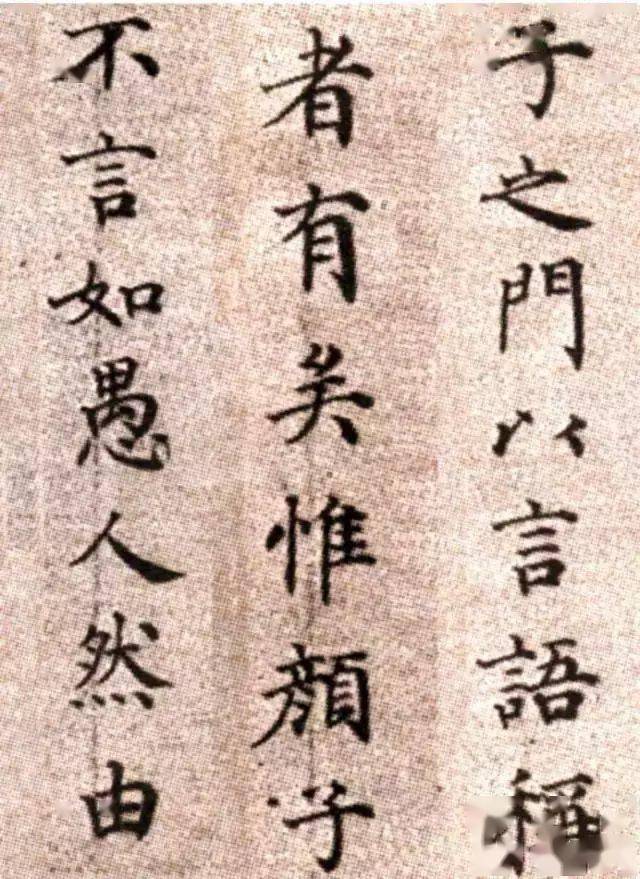 子之門以言語稱
者有矣惟顏子
不言如愚人然由